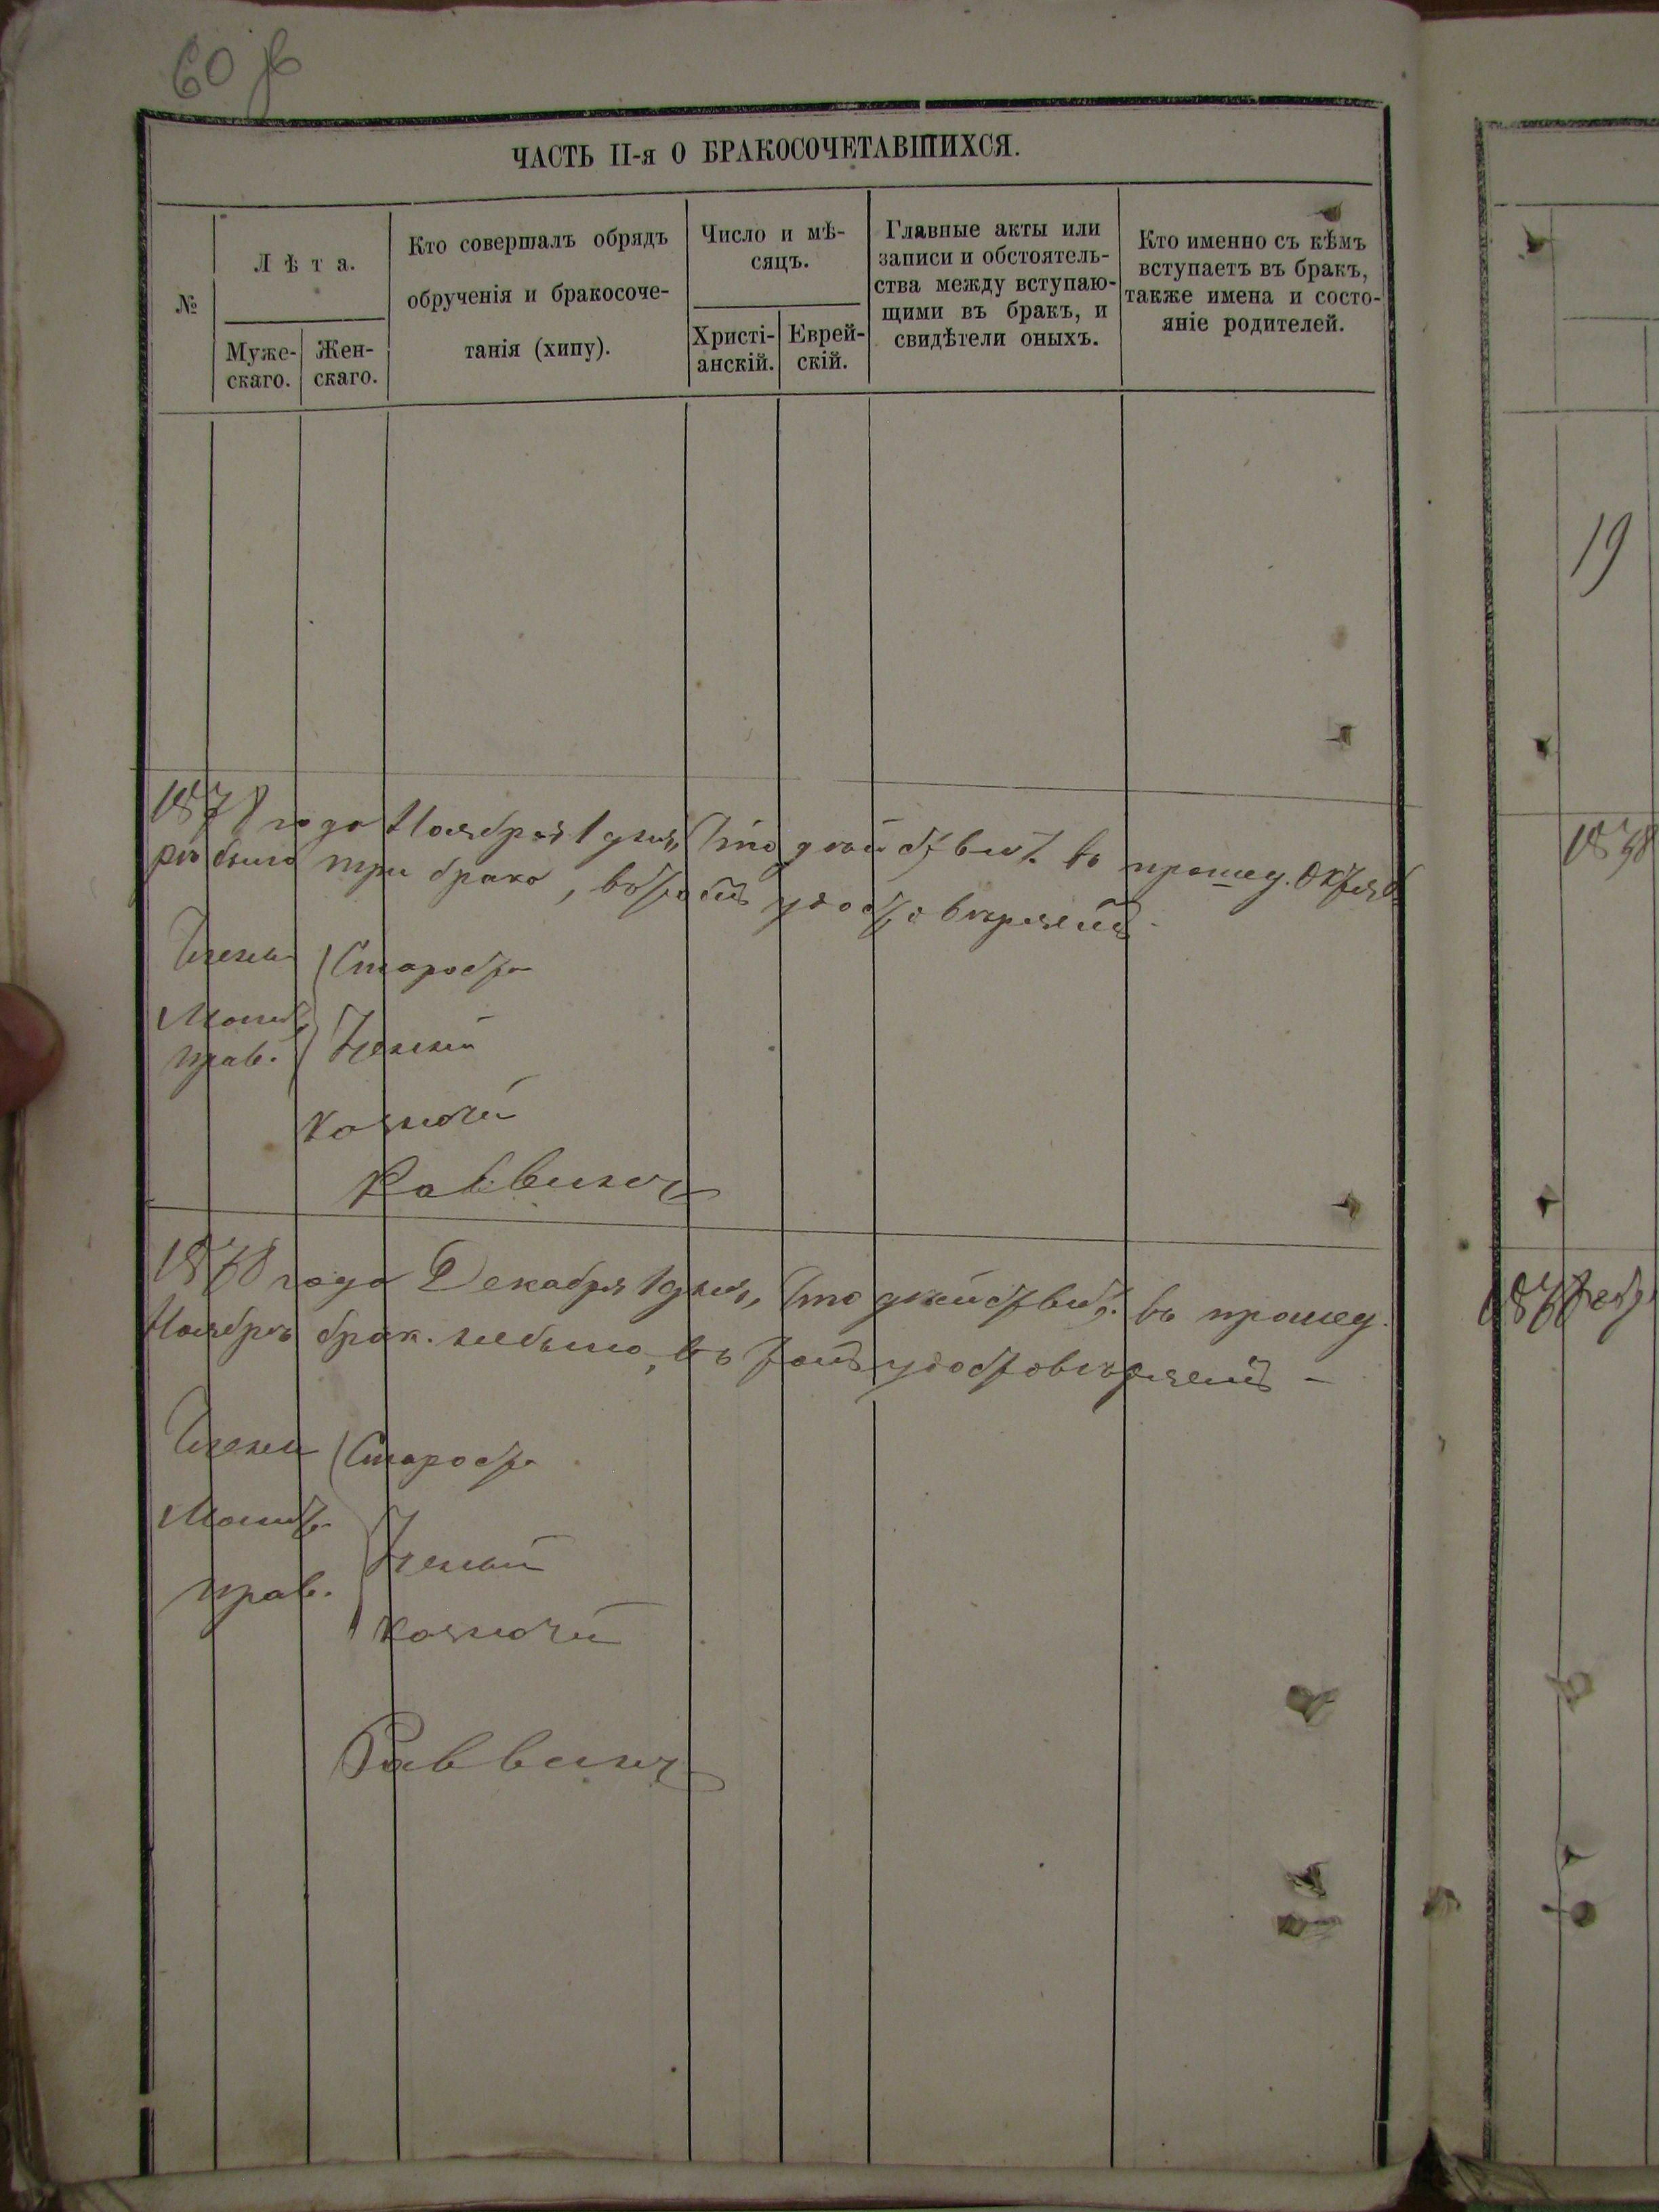 60 об
ЧАСТЬ II-я О БРАКОСОЧЕТАВШИХСЯ.
№
Лѣта.
Муже-
скаго.
Жен-
скаго.
Кто совершалъ обрядъ
обрученія и бракосоче-
танія (хипу).
Число и мѣ-
сяцъ.
Христі-
анскій.
Еврей-
скій.
Главные акты или
записи и обстоятель-
ства между вступаю-
щими въ бракъ, и
свидѣтели оныхъ.
Кто именно съ кѣмъ
вступаетъ въ бракъ,
также имена и состо-
яніе родителей.
1878 года Ноября 1 дня, Что дѣйствит. въ прошед. Октяб
рѣ было три брака, въ томъ удостовѣряемъ
Члены Староста
Молит.
прав. Ученый
Казначей
Раввинъ
1878 года Декабря 1 дня, Что дѣйствит. въ прошед.
Ноябрѣ брак. небыло, въ томъ удостовѣряемъ -
Члены Староста
Молит.
Ученый
прав.
Казначей
Раввинъ
19
1878
1878